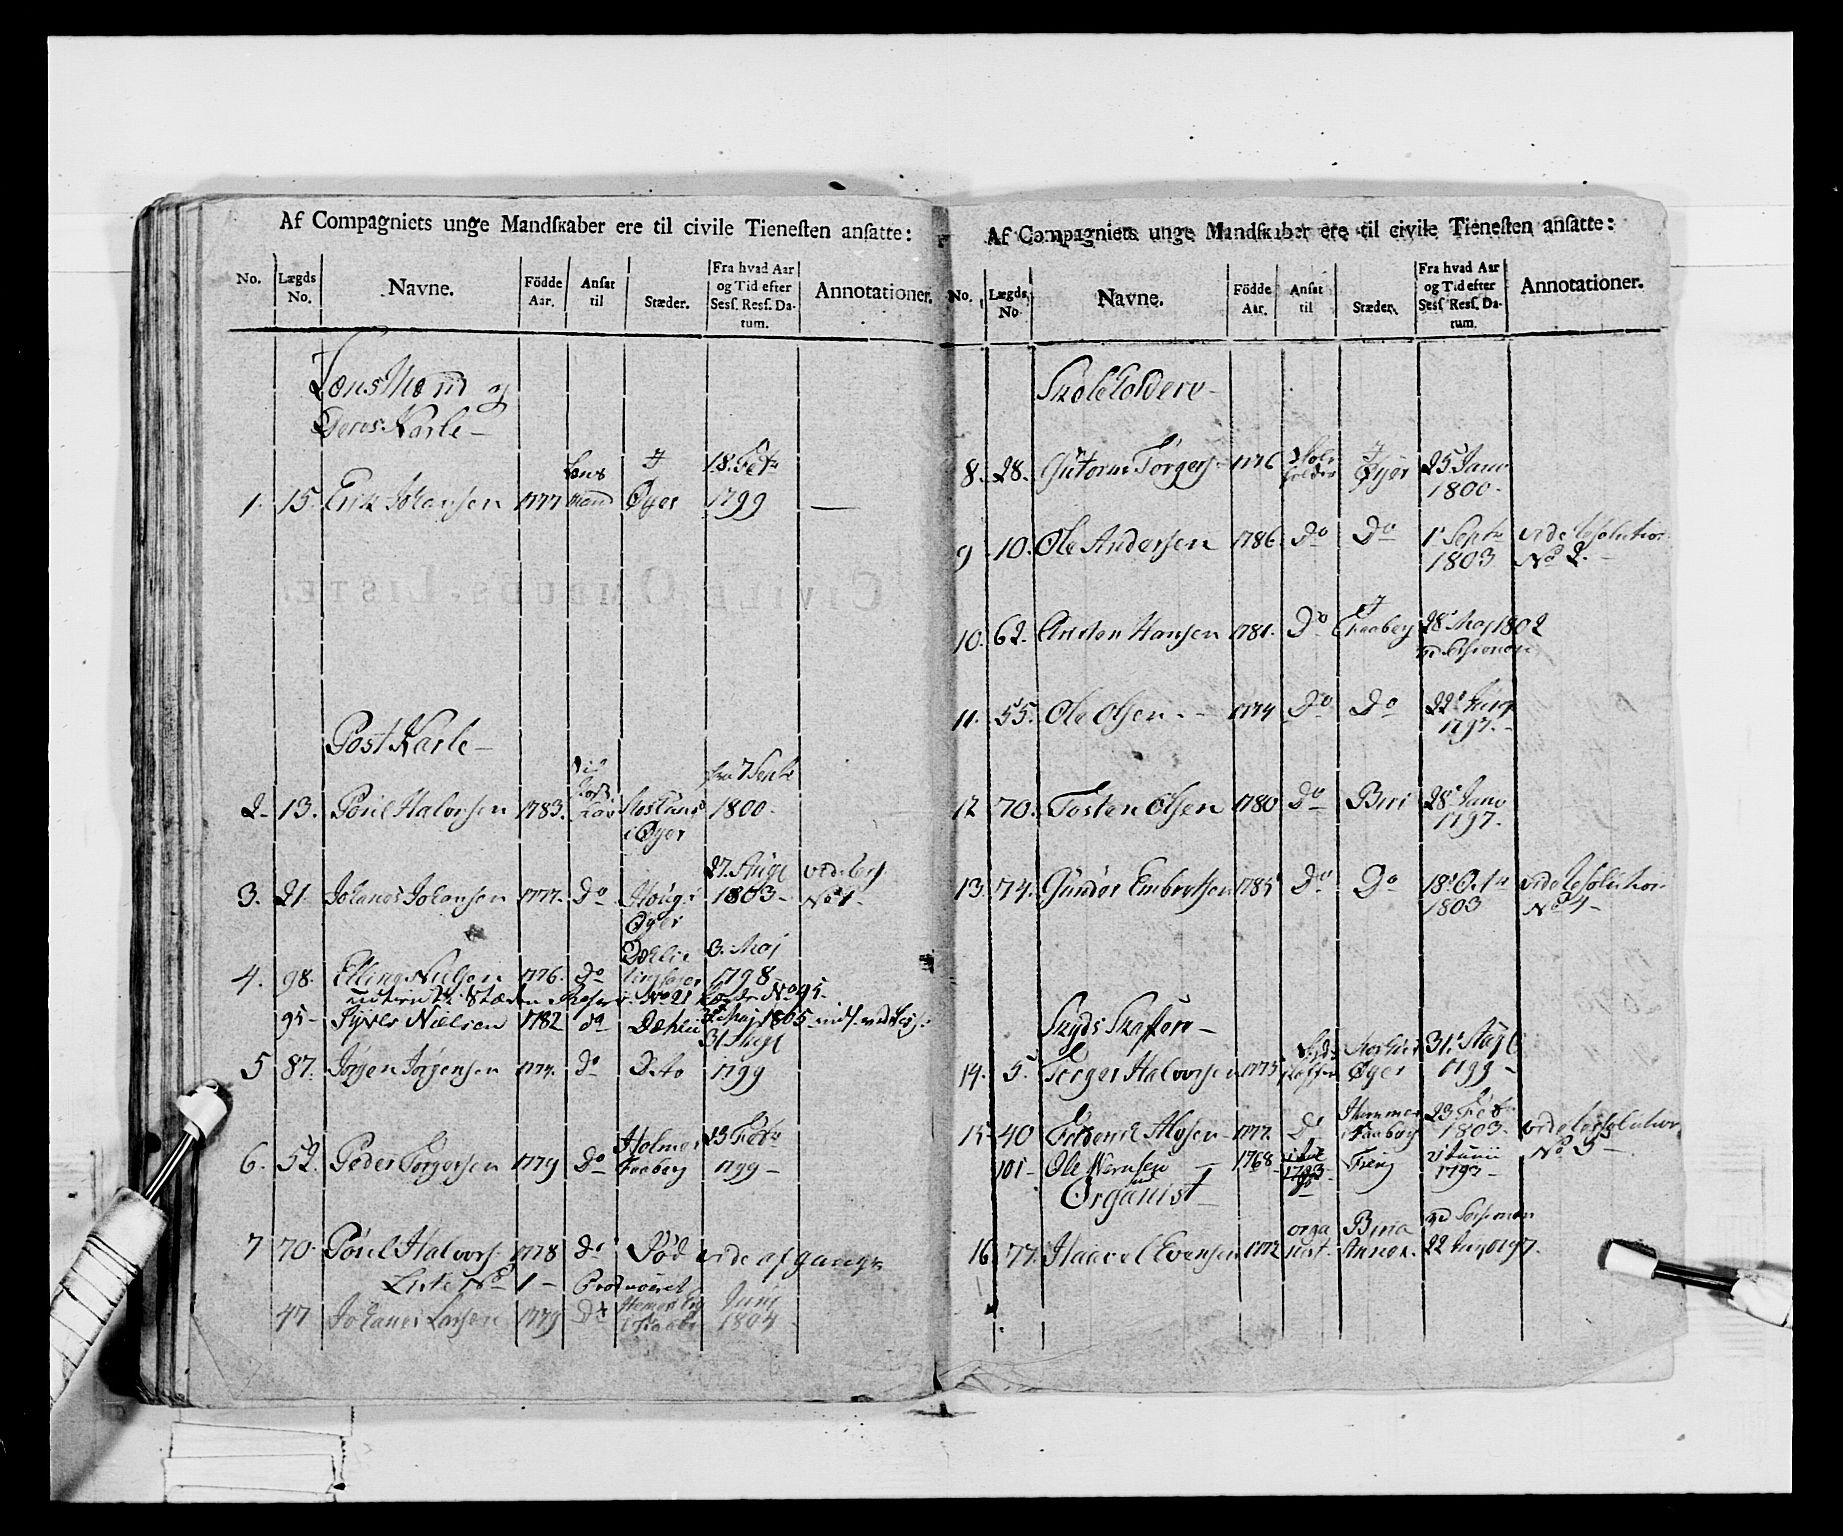 Af Compagniets unge Mandskaber ere til civile Tienesten ansatte:
No. Lægds No. Navne. Födde Aar. Ansat til Stæder. Fra hvad Aar og Tid efter Sess. Ress. Datum. Annotationer.
Lensmænd og
Deres Karle -
1. 15. Erik Johansen 1777 Lens mand I Øyer 18. Febr 1799 -
Post Karle -
2. 13. Poul Halvorsen 1783. til Post Kar i Øyer fra 7 Septr 1800.
3. 21. Johanes Johansen 1777. Do Houg i Øyer 27. Augt 1803 - vide Res No 1 -
4. 98. Elling Nielsen 1776. Do 3. Maj 1798
No 21 No 95.
95 - Syver Nielsen 1782 do Dæhlie Maj 1805
5 87. Jörgen Jörgensen 1774. do Dito 31 Augt 1799
6. 52. Peder Torgersen 1779 Do Holmen Faaberg 23 Febr 1799 -
7 70. Poul Halvors. 1778 do Död vide afgangs
Liste No 1 -
47 Johanes Larsen 1779 Do Juni 1804
Af Compagniets unge Mandskaber ere til civile Tienesten ansatte:
No. Lægds No Navne. Födde Aar. Ansat til Stæder. Fra hvad Aar og Tid efter Sess. Ress. Datum. Annotationer.
Skoleholdere -
8. 28. Gutorm Torgers. 1776 Skole holder I Øyer 25 Janv 1800.
9 10. Ole Andersen 1786. Do Do 1 Septr 1803 vide Resolution No 2. -
10. 62. Christen Hansen 1781. Do I Faaberg 28 Maj 1802
11. 55. Ole Olsen - - 1774 Do Do 22 1797. -
12 70. Tosten Olsen 1780 Do Biri 28 Janv 1797.
13. 74. Gunder Embretsen 1785 Do Do 18 Octr 1803 vide Resolution No 4 -
Skyds Skaffere -
14. 5. Torger Halvorsen 1775 Skyds skaffer Øyer 31. Augt 1799 -
15 40 Friderich Alvsen 1777. Do Hammer i Faaberg 23 Febr 1803. vide Resolution No 3 -
101 - Ole Iversen - 1768 21 Junii 1793 -
Organist
16 77. Haavel Evensen 1772 orga nist. Biria Annex. ved Sessionen 22 1797.